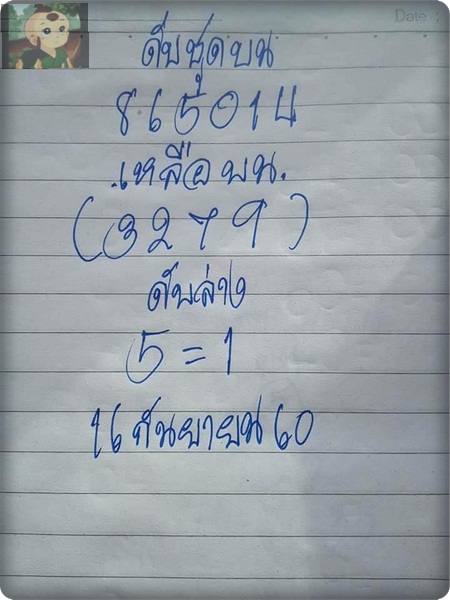 Date :
ดับชุดบน
865014
เหลือบน.
(3279)
ดับล่าง
5=1
16 กันยายน 60